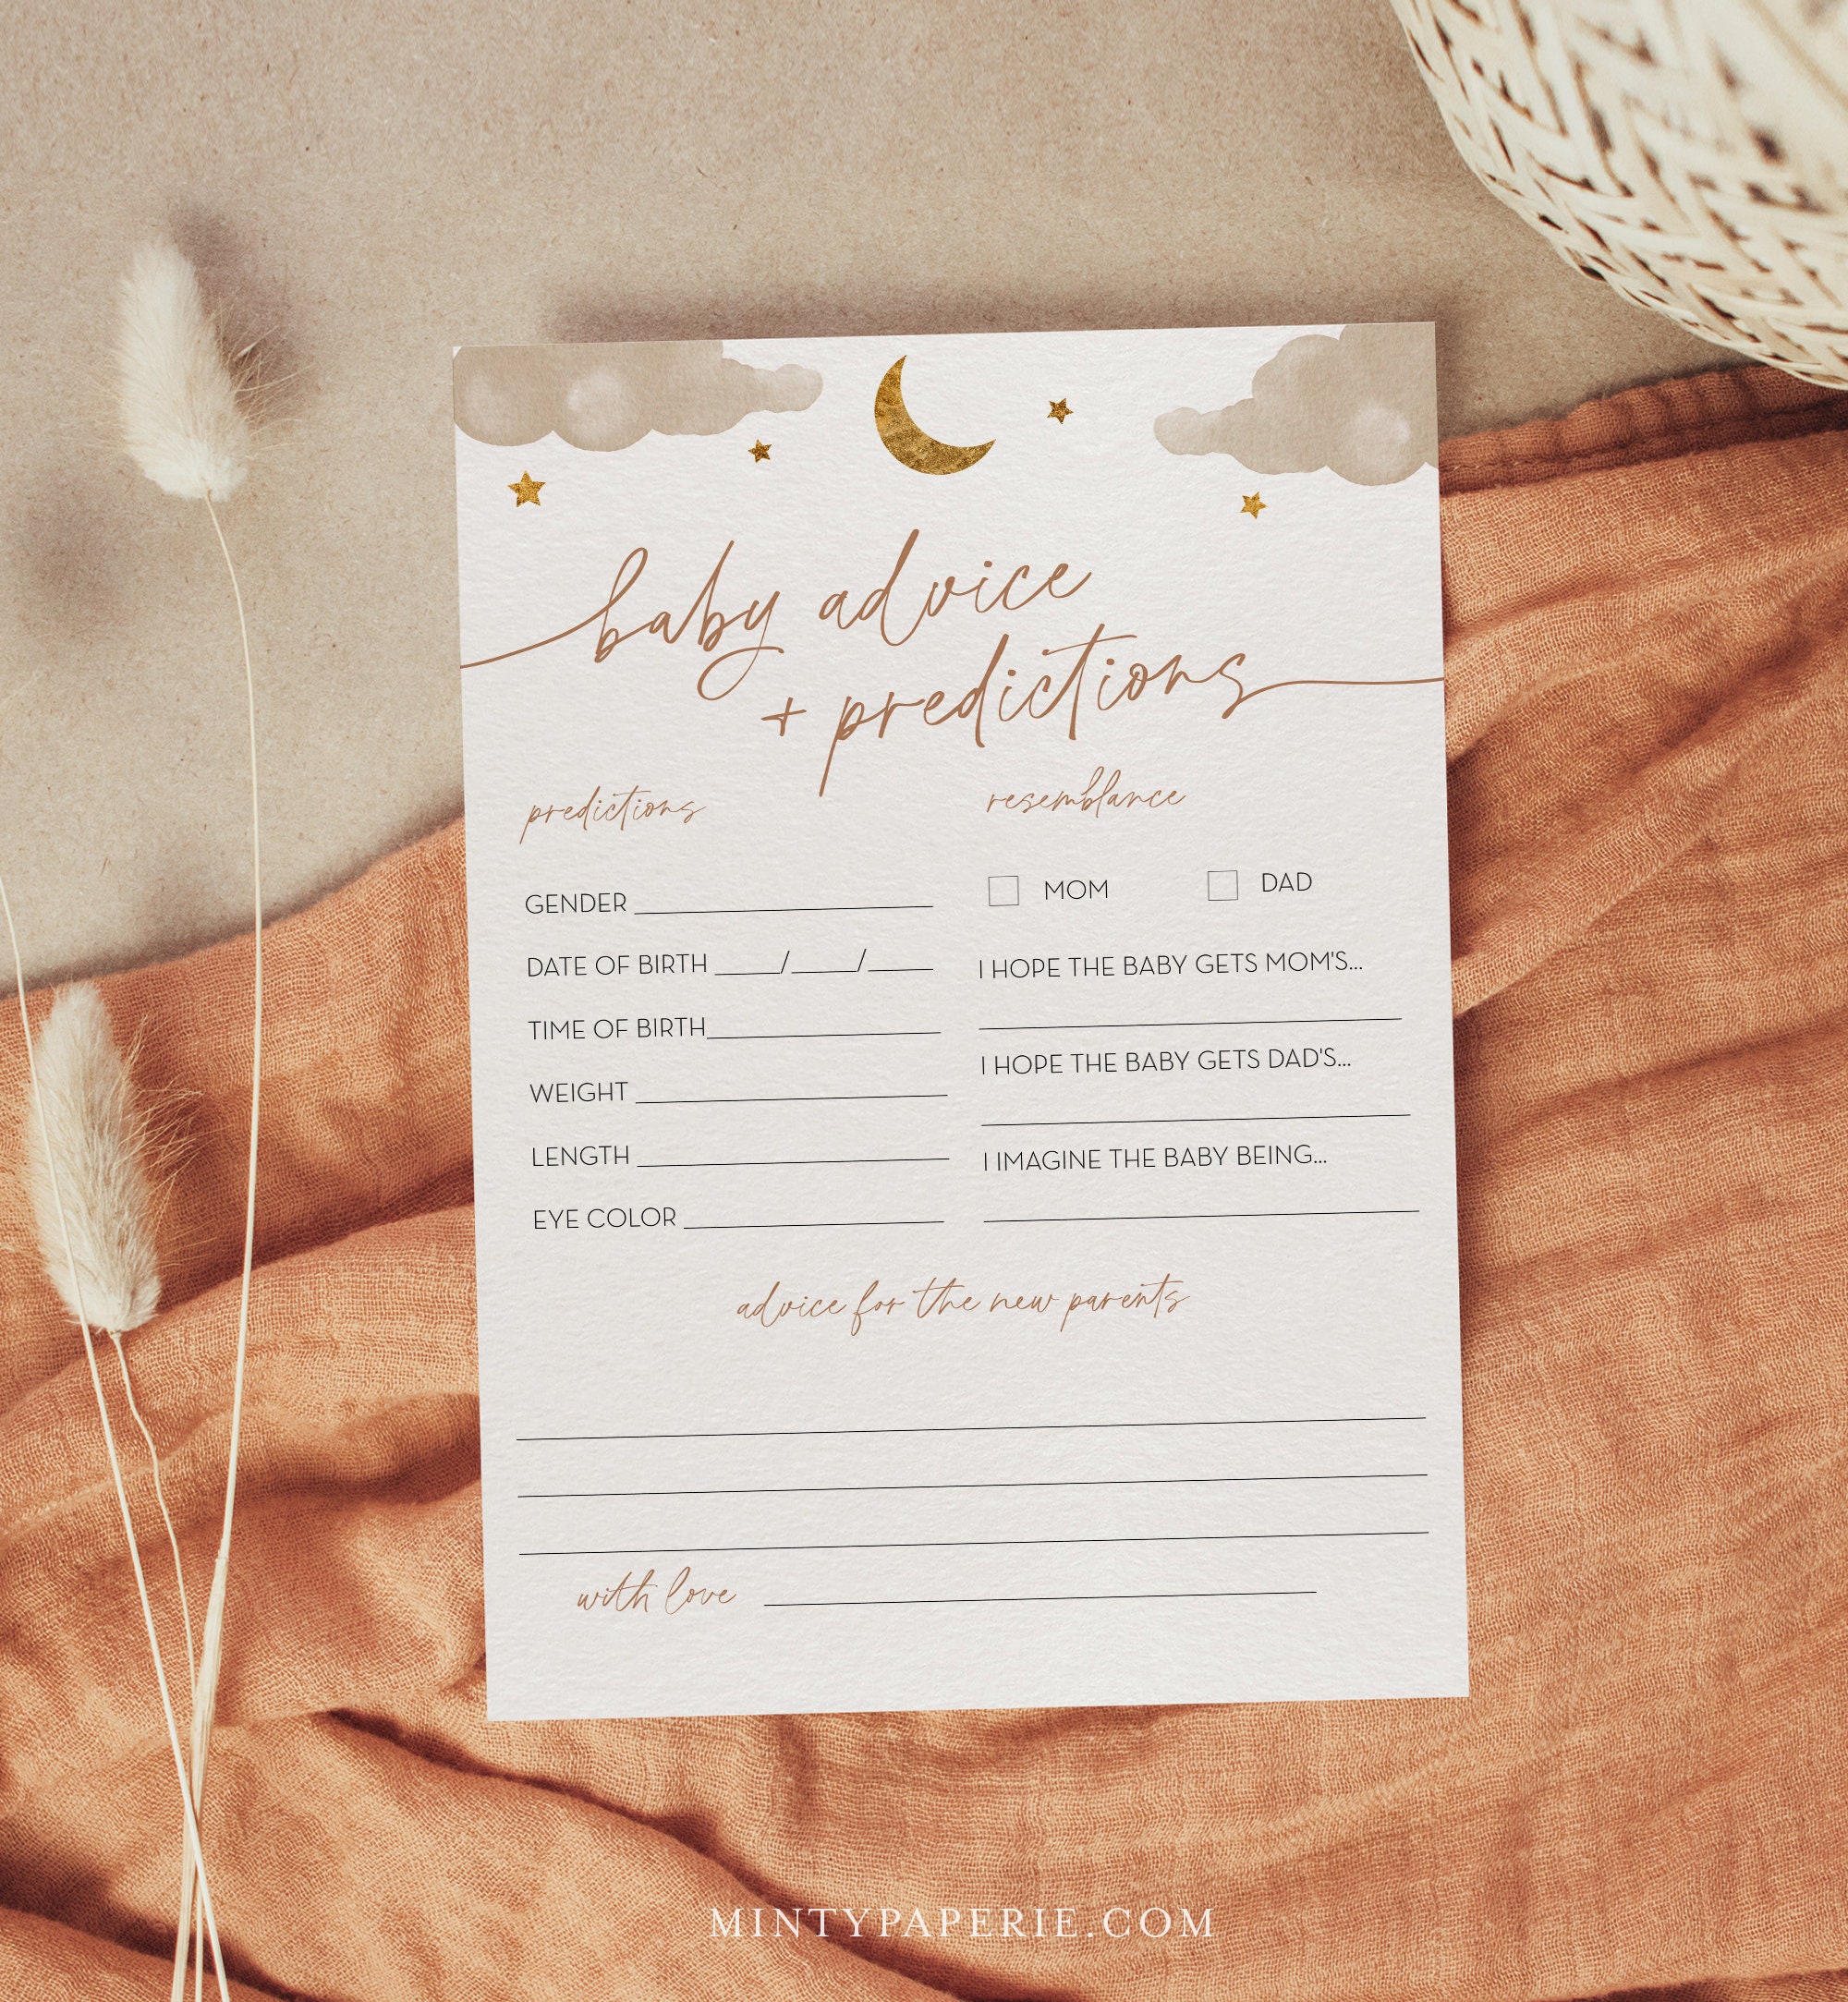 baby advice
+ predictions
predictions
GENDER
DATE OF BIRTH ____/____/____
TIME OF BIRTH
WEIGHT
LENGTH
EYE COLOR
resemblance
MOM
DAD
I HOPE THE BABY GETS MOM'S...
I HOPE THE BABY GETS DAD'S...
I IMAGINE THE BABY BEING...
advice for the new parents
with love
MINTYPAPERIE.COM